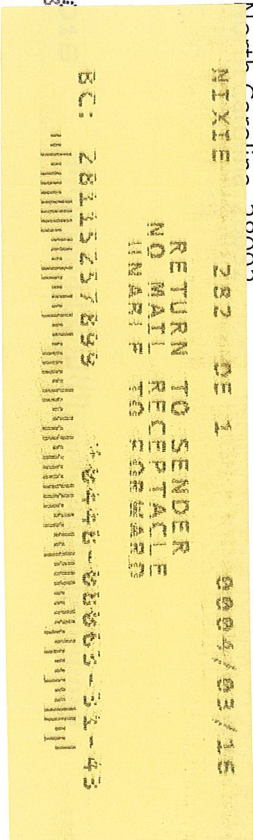 NIXIE 282 DE 1 0004/03/16
RETURN TO SENDER
NO MAIL RECEPTACLE
UNABLE TO FORWARD
BC: 28115257899
North Carolina